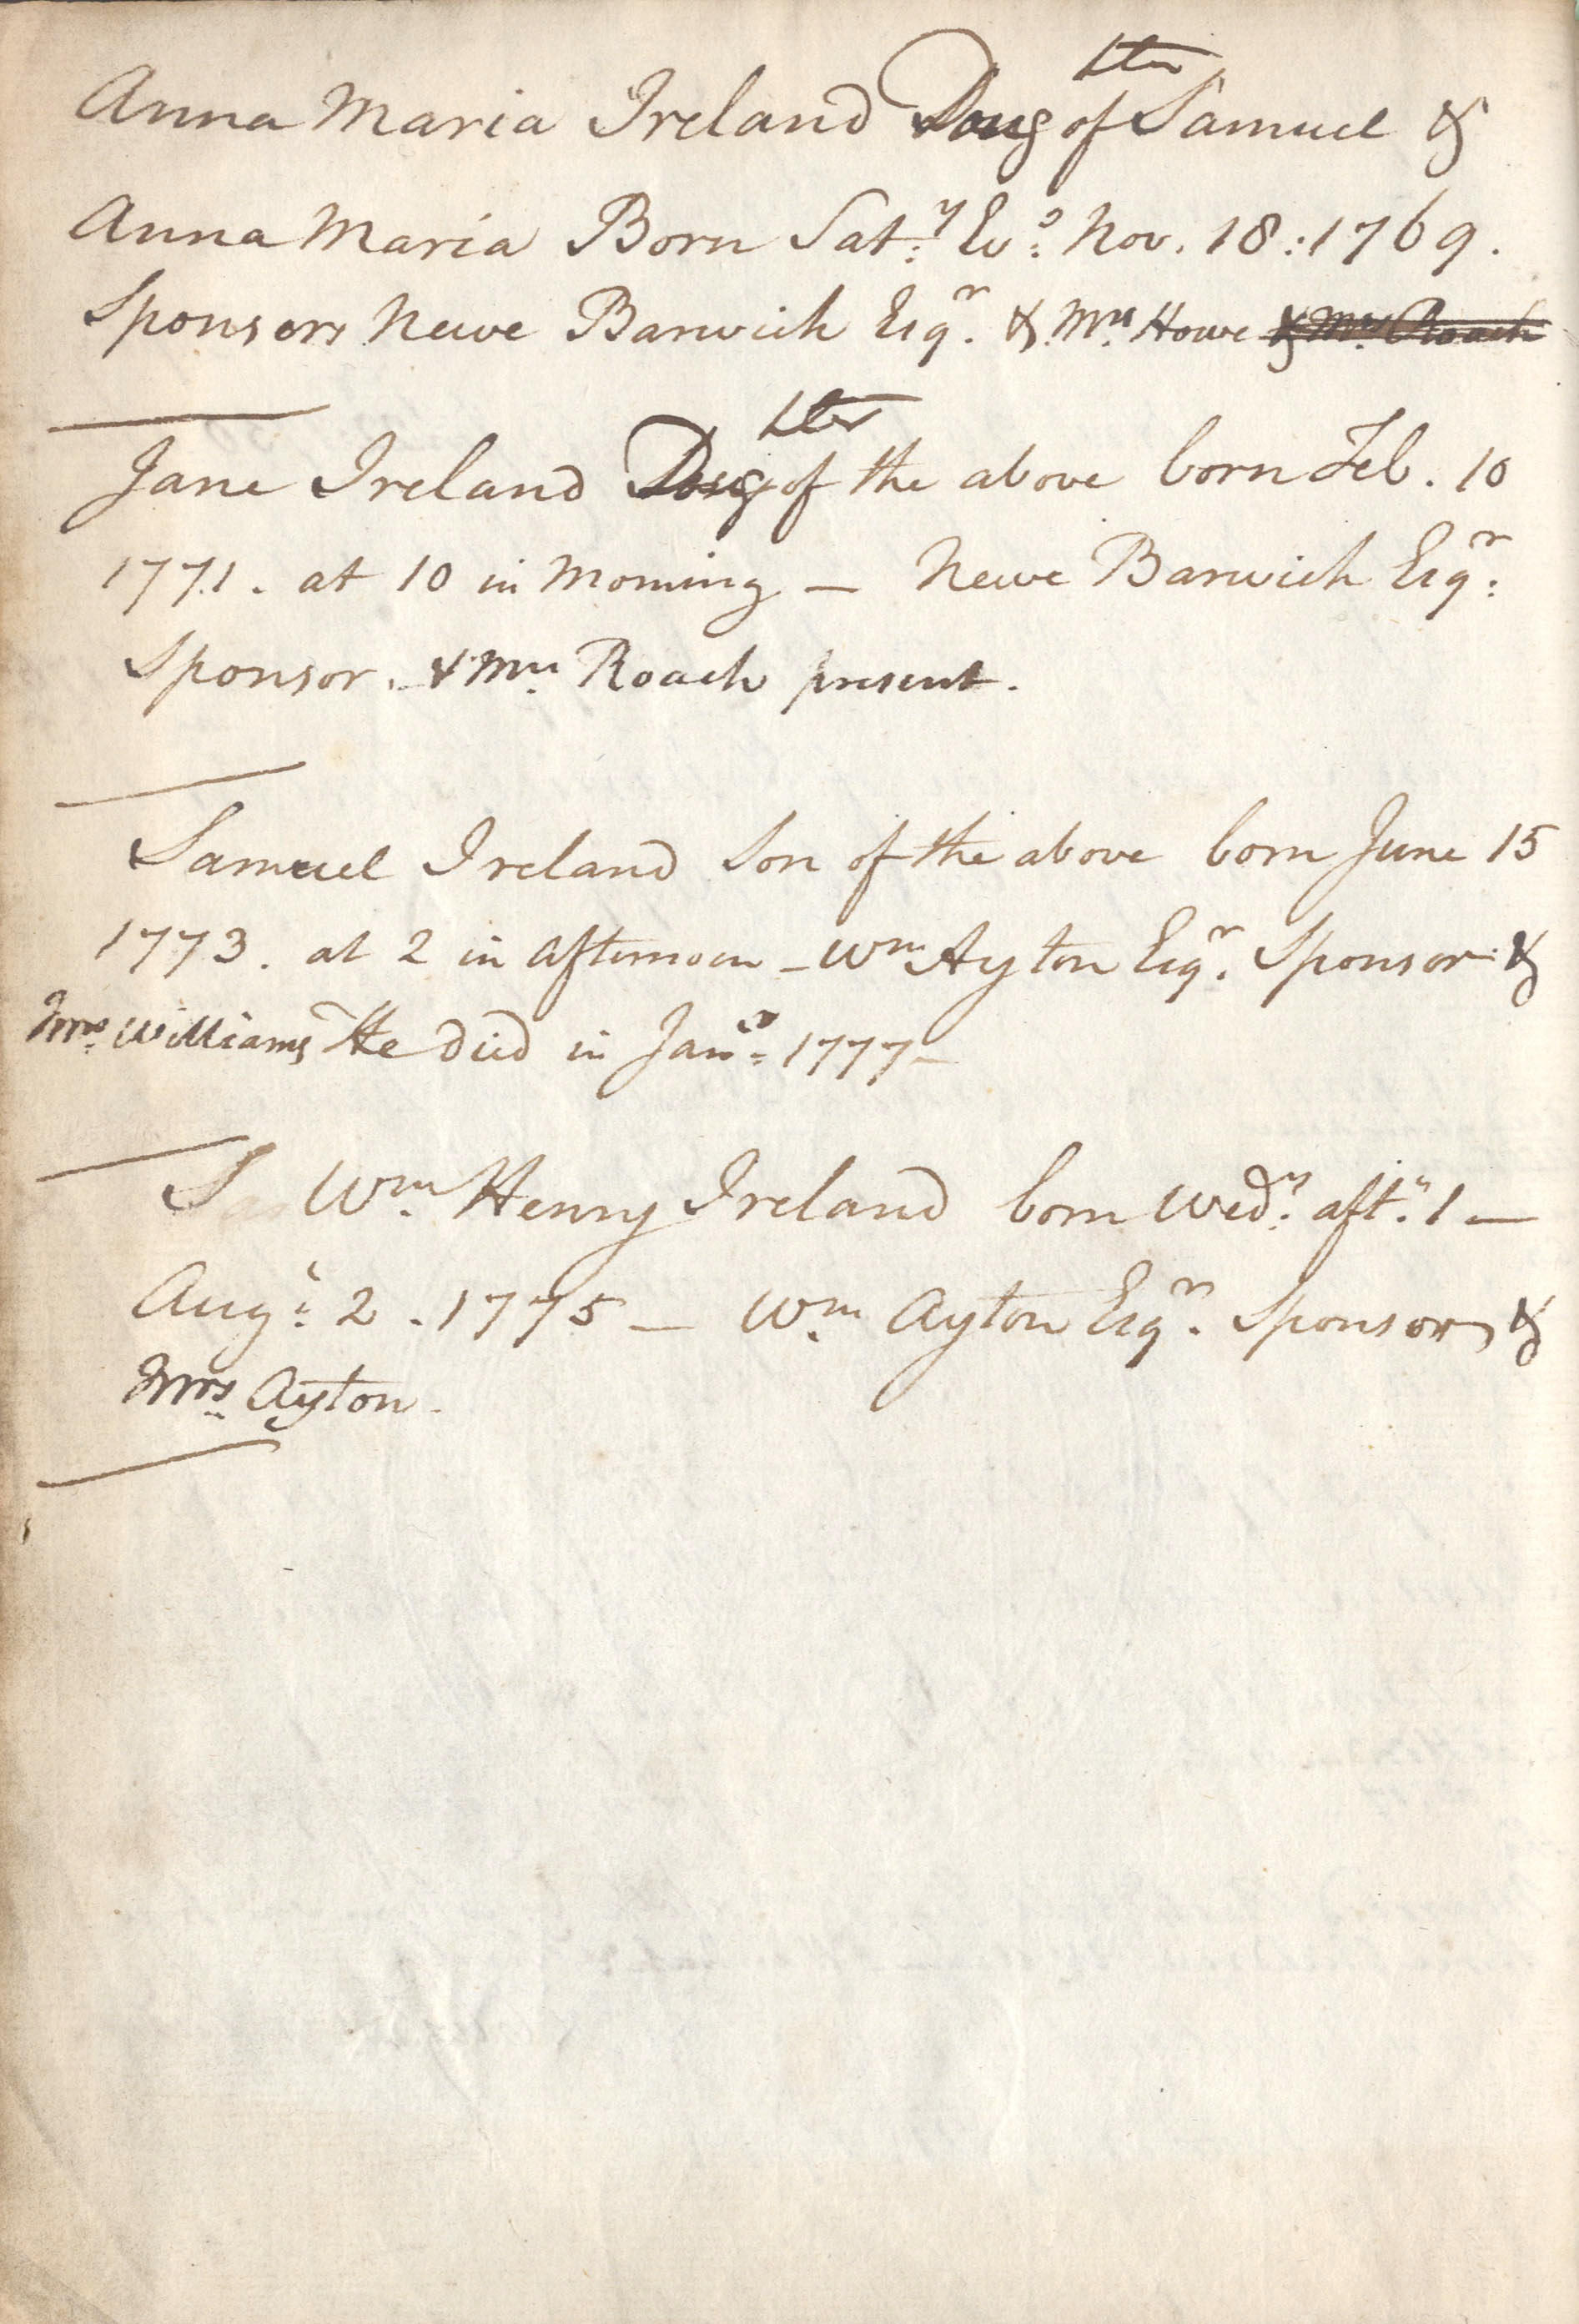 Anna Maria Ireland Daughter of Samuel &
Anna Maria Born Sat:y Ev:g Nov. 18:1769.
Sponsors Newe Barwick Esqr. & Mrs. Howe & Mrs Roach
Jane Ireland Daughter of the above born Feb. 10
1771. at 10 in Morning — Newe Barwick Esqr:
Sponsor. & Mrs. Roach present.
Samuel Ireland Son of the above born June 15
1773. at 2 in afternoon — Wm Ayton Esqr. Sponsor: &
Mrs. Williams He died in Jany. 1777 —
S Wm. Henry Ireland born Wed:y aft:n 1 —
Aug:t 2. 1775 — Wm. Ayton Esqr. Sponsor, &
Mrs. Ayton.